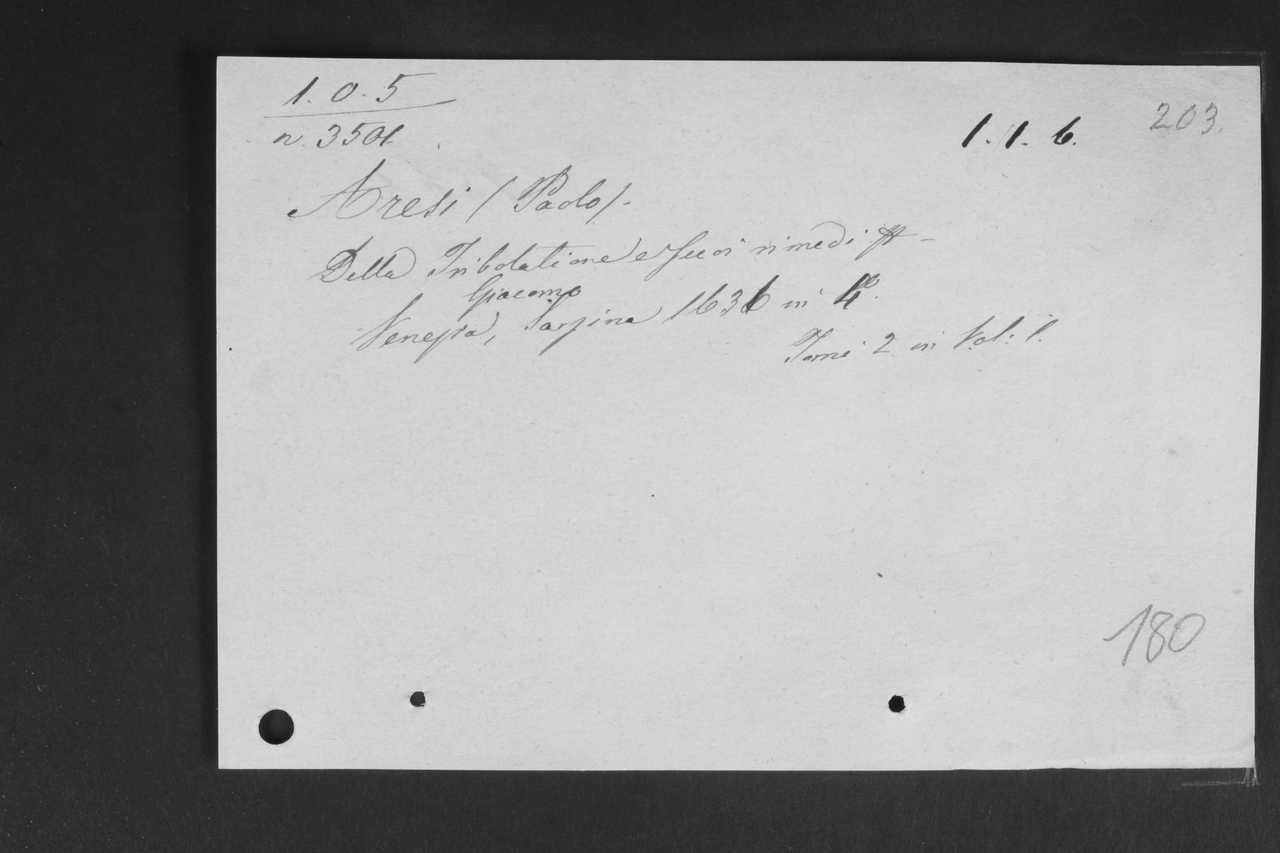 1. 0. 5
n. 3501
1. 1. 6.
203.
Aresi (Paolo).
Della Tribolatione e suoi rimedi
Giacomo
Venezia, Sarzina 1636 in 4°.
Tomi 2 in Vol: 1.
180